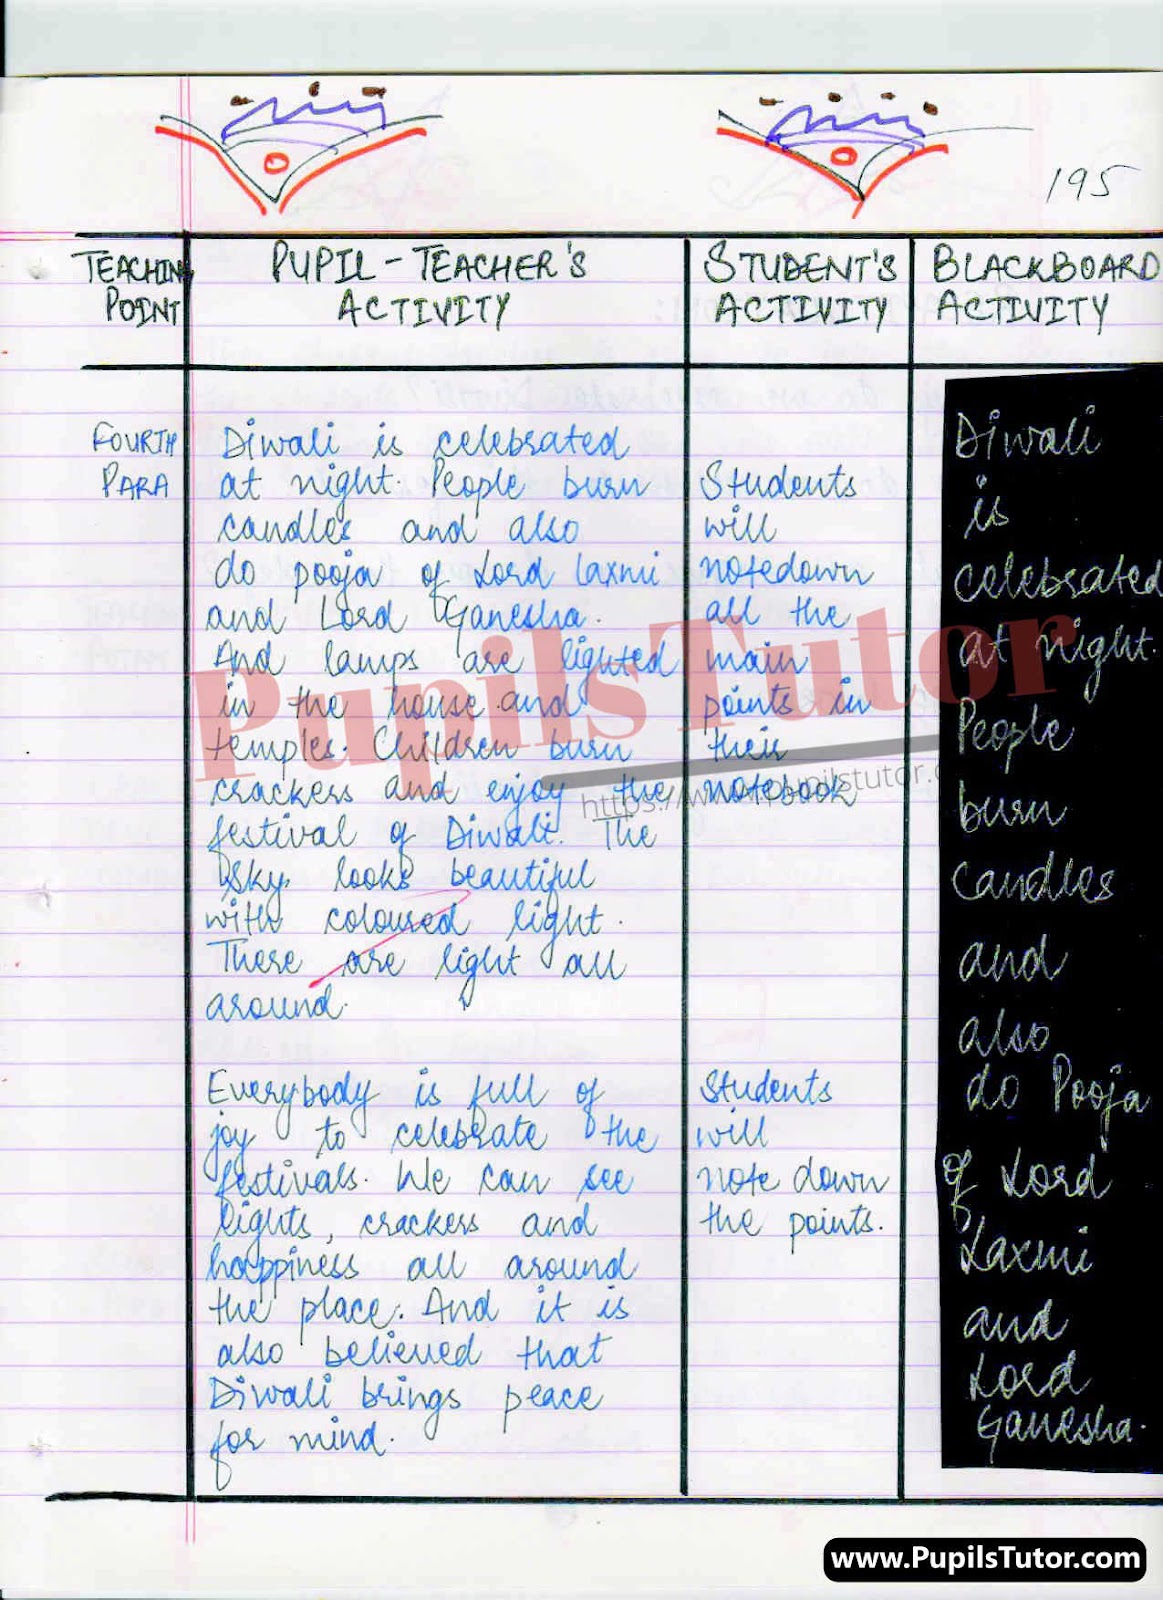 195
TEACHING
POINT
PUPIL - TEACHER'S
ACTIVITY
STUDENT'S
ACTIVITY
BLACKBOARD
ACTIVITY
FOURTH
PARA
Diwali is celebrated
at night. People burn
candles and also
do pooja of Lord laxmi
and Lord Ganesha.
And lamps are lighted
in the house and
temples. Children burn
crackers and enjoy the
festival of Diwali. The
sky looks beautiful
with coloured light.
There are light all
around.
Everybody is full of
joy to celebrate the
festivals. We can see
lights, crackers and
happiness all around
the place. And it is
also believed that
Diwali brings peace
for mind.
Students
will
notedown
all the
main
points in
their
notebook
Students
will
note down
the points.
Diwali
is
celebrated
at night.
People
burn
candles
and
also
do Pooja
of Lord
Laxmi
and
Lord
Ganesha.
PupilsTutor
www.PupilsTutor.com